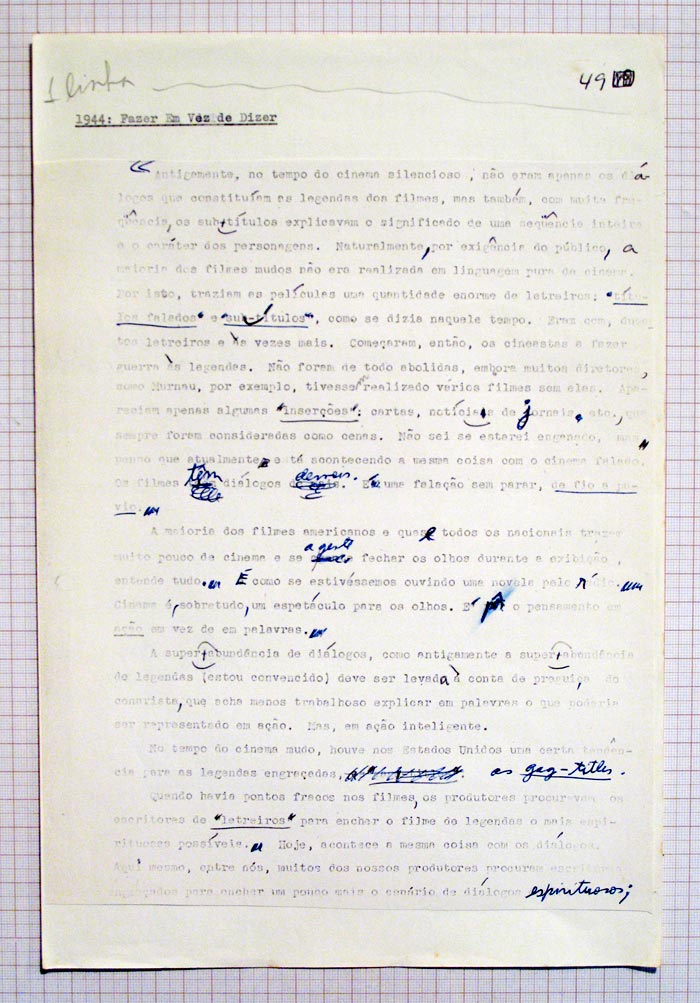 1 linha
49
1944: Fazer Em Vez de Dizer
"Antigamente, no tempo do cinema silencioso, não eram apenas os diá-
logos que constituíam as legendas dos filmes, mas também, com muita fre-
qüência, os subtítulos explicavam o significado de uma seqüência inteira
e o caráter dos personagens. Naturalmente, por exigência do público, a
maioria dos filmes mudos não era realizada em linguagem pura de cinema.
Por isto, traziam as películas uma quantidade enorme de letreiros: "títu-
los falados" e "sub-títulos", como se dizia naquele tempo. Eram cem, duzen-
tos letreiros e às vezes mais. Começaram, então, os cineastas a fazer
guerra às legendas. Não foram de todo abolidas, embora muitos diretores,
como Murnau, por exemplo, tivessem realizado vários filmes sem elas. Apa-
reciam apenas algumas "inserções": cartas, notícias de jornais, etc., que
sempre foram consideradas como cenas. Não sei se estarei enganado, mas
penso que atualmente está acontecendo a mesma coisa com o cinema falado.
Os filmes têm diálogos demais. É uma falação sem parar, de fio a pa-
vio."
A maioria dos filmes americanos e quase todos os nacionais trazem
muito pouco de cinema e se a gente fechar os olhos durante a exibição,
entende tudo." É como se estivéssemos ouvindo uma novela pelo rádio."
Cinema é, sobretudo, um espetáculo para os olhos. É o pensamento em
ação em vez de em palavras."
A superabundância de diálogos, como antigamente a superabundância
de legendas (estou convencido) deve ser levada à conta de preguiça, do
cenarista, que acha menos trabalhoso explicar em palavras o que poderia
ser representado em ação. Mas, em ação inteligente.
No tempo do cinema mudo, houve nos Estados Unidos uma certa tendên-
cia para as legendas engraçadas, as gag-titles.
Quando havia pontos fracos nos filmes, os produtores procuravam os
escritores de "letreiros" para encher o filme de legendas o mais espi-
rituosas possíveis." Hoje, acontece a mesma coisa com os diálogos.
Aqui mesmo, entre nós, muitos dos nossos produtores procuram escritores
engraçados para encher um pouco mais o cenário de diálogos espirituosos;